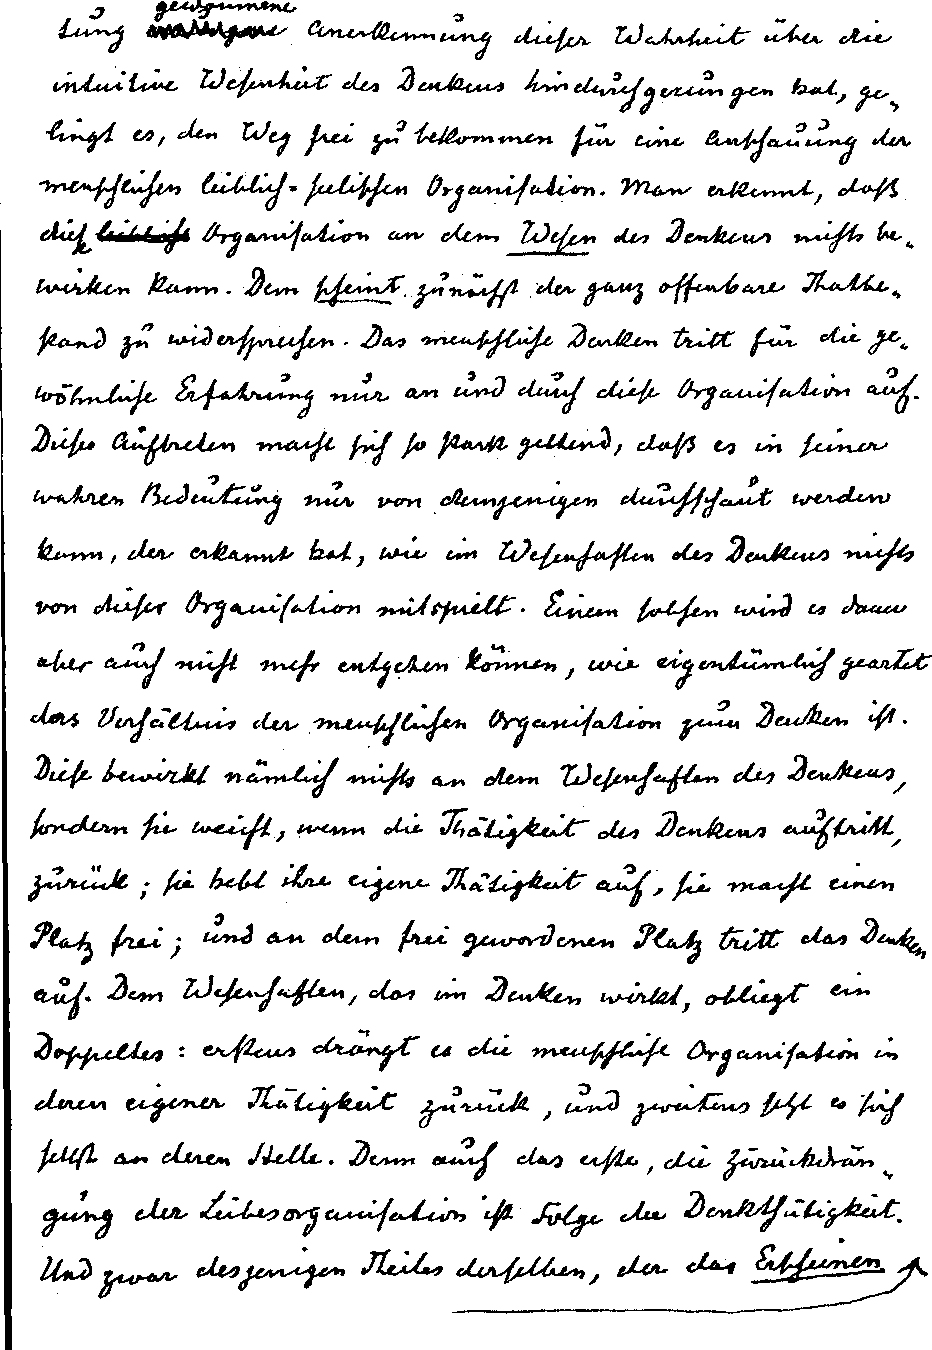 gewonnene
tung Anerkennung dieser Wahrheit über die
intuitive Wesenheit des Denkens hindurchgerungen hat, ge„
lingt es, den Weg frei zu bekommen für eine Anschauung der
menschlichen leiblich-seelischen Organisation. Man erkennt, daß
diese leibliche Organisation an dem Wesen des Denkens nichts be„
wirken kann. Dem scheint zunächst der ganz offenbare Thatbe„
stand zu widersprechen. Das menschliche Denken tritt für die ge„
wöhnliche Erfahrung nur an und durch diese Organisation auf.
Dieses Auftreten macht sich so stark geltend, daß es in seiner
wahren Bedeutung nur von demjenigen durchschaut werden
kann, der erkannt hat, wie im Wesenhaften des Denkens nichts
von dieser Organisation mitspielt. Einem solchen wird es dann
aber auch nicht mehr entgehen können, wie eigentümlich geartet
das Verhältnis der menschlichen Organisation zum Denken ist.
Diese bewirkt nämlich nichts an dem Wesenhaften des Denkens,
sondern sie weicht, wenn die Thätigkeit des Denkens auftritt,
zurück; sie hebt ihre eigene Thätigkeit auf, sie macht einen
Platz frei; und an dem frei gewordenen Platz tritt das Denken
auf. Dem Wesenhaften, das im Denken wirkt, obliegt ein
Doppeltes: erstens drängt es die menschliche Organisation in
deren eigener Thätigkeit zurück, und zweitens setzt es sich
selbst an deren Stelle. Denn auch das erste, die Zurückdrän„
gung der Leibesorganisation ist Folge der Denkthätigkeit.
Und zwar desjenigen Theiles derselben, der das Erscheinen